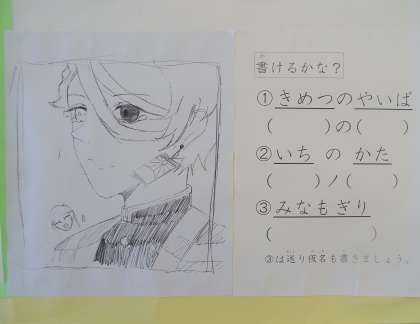 書けるかな？
① きめつのやいば
(　　　)の(　　　)
② いち の かた
(　　　)ノ(　　　)
③ みなもぎり
(　　　　　　)
③は送り仮名も書きましょう。